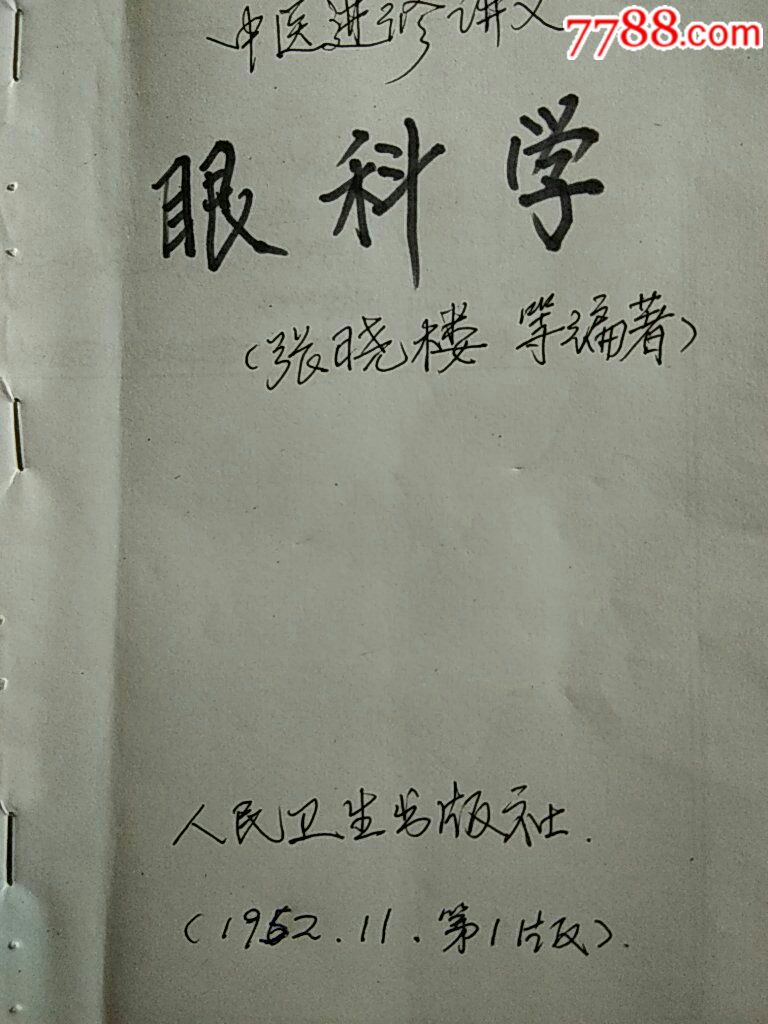 中医进修讲义
7788.com
眼科学
(张晓楼 等编著)
人民卫生出版社.
(1952.11.第1版).